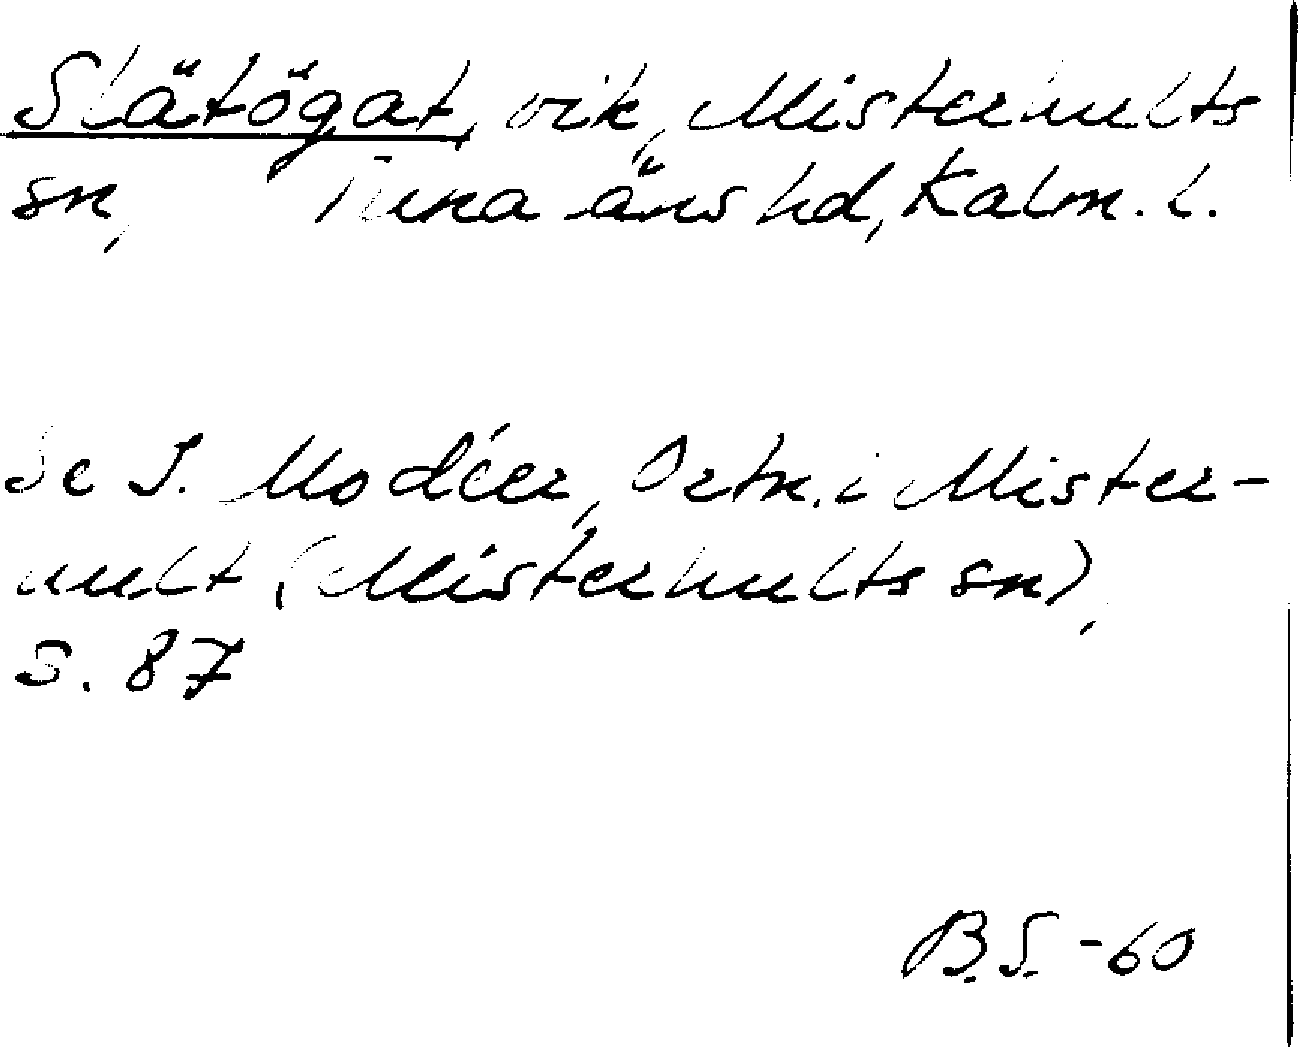 Slätögat, vik, Misterhults
sn, Tunaläns hd, Kalm. l.
Se I. Modéer, Ortn. i Mister-
hult (Misterhults sn),
s. 87
B.S. -60